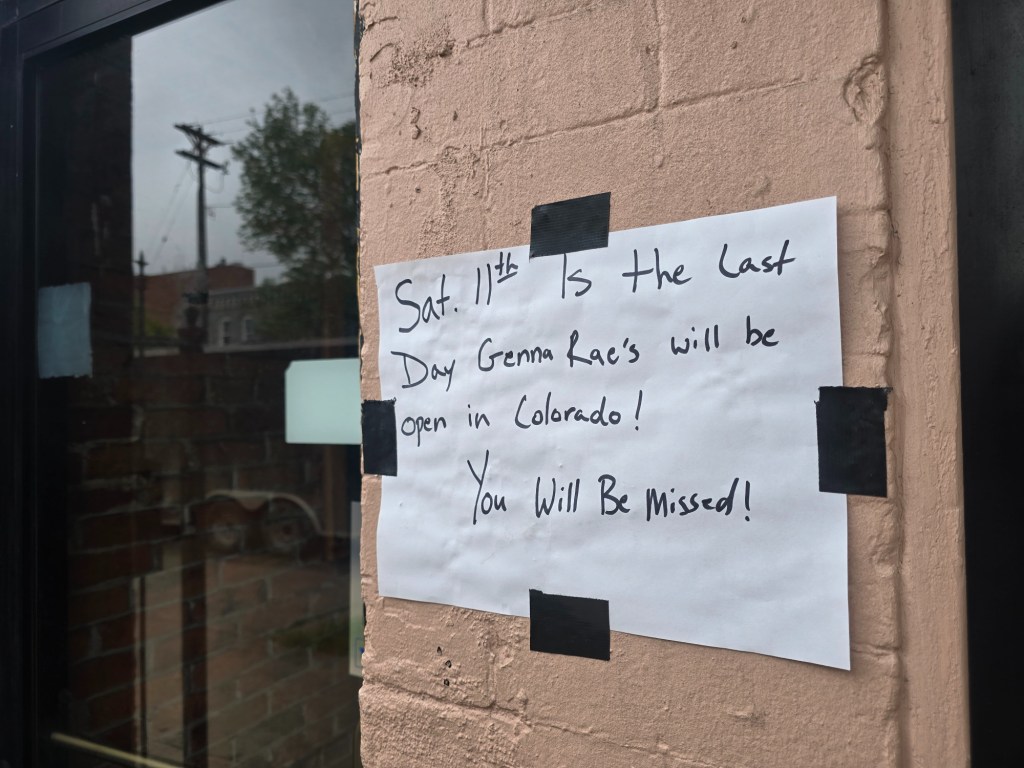 Sat. 11th Is the Last
Day Genna Rae's will be
open in Colorado!
You Will Be Missed!